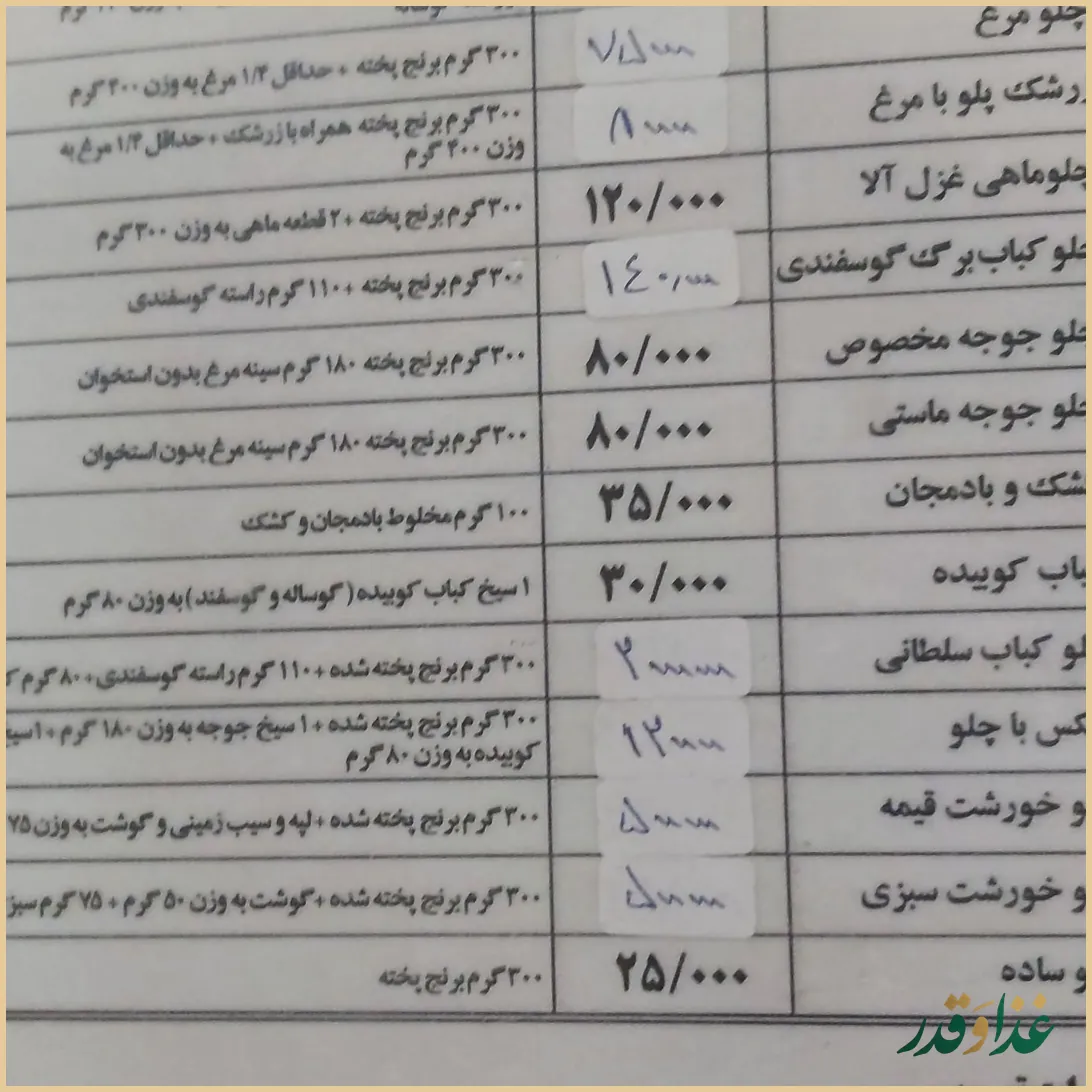 چلو مرغ
۷۵۰۰۰
۳۰۰ گرم برنج پخته + حداقل ۱/۴ مرغ به وزن ۴۰۰ گرم
زرشک پلو با مرغ
۸۰۰۰۰
۳۰۰ گرم برنج پخته همراه با زرشک + حداقل ۱/۴ مرغ به
وزن ۴۰۰ گرم
چلوماهی غزل آلا
۱۲۰/۰۰۰
۳۰۰ گرم برنج پخته +۲ قطعه ماهی به وزن ۳۰۰ گرم
چلو کباب برگ گوسفندی
۱۴۰/۰۰۰
۳۰۰ گرم برنج پخته +۱۱۰ گرم راسته گوسفندی
چلو جوجه مخصوص
۸۰/۰۰۰
۳۰۰ گرم برنج پخته ۱۸۰ گرم سینه مرغ بدون استخوان
چلو جوجه ماستی
۸۰/۰۰۰
۳۰۰ گرم برنج پخته ۱۸۰ گرم سینه مرغ بدون استخوان
کشک و بادمجان
۳۵/۰۰۰
۱۰۰ گرم مخلوط بادمجان و کشک
کباب کوبیده
۳۰/۰۰۰
۱ سیخ کباب کوبیده ( گوساله و گوسفند ) به وزن ۸۰ گرم
چلو کباب سلطانی
۳۰۰ گرم برنج پخته شده +۱۱۰ گرم راسته گوسفندی+۸۰ گرم
با چلو
۳۰۰ گرم برنج پخته شده +۱ سیخ جوجه به وزن ۱۸۰ گرم +۱سیخ
کوبیده به وزن ۸۰ گرم
و خورشت قیمه
۵۰۰۰۰
۳۰۰ گرم برنج پخته شده +لپه و سیب زمینی و گوشت به وزن ۷۵
و خورشت سبزی
۵۰۰۰۰
۳۰۰ گرم برنج پخته شده +گوشت به وزن ۵۰ گرم + ۷۵ گرم سبز
و ساده
۲۵/۰۰۰
۳۰۰ گرم برنج پخته
غذا و قدر